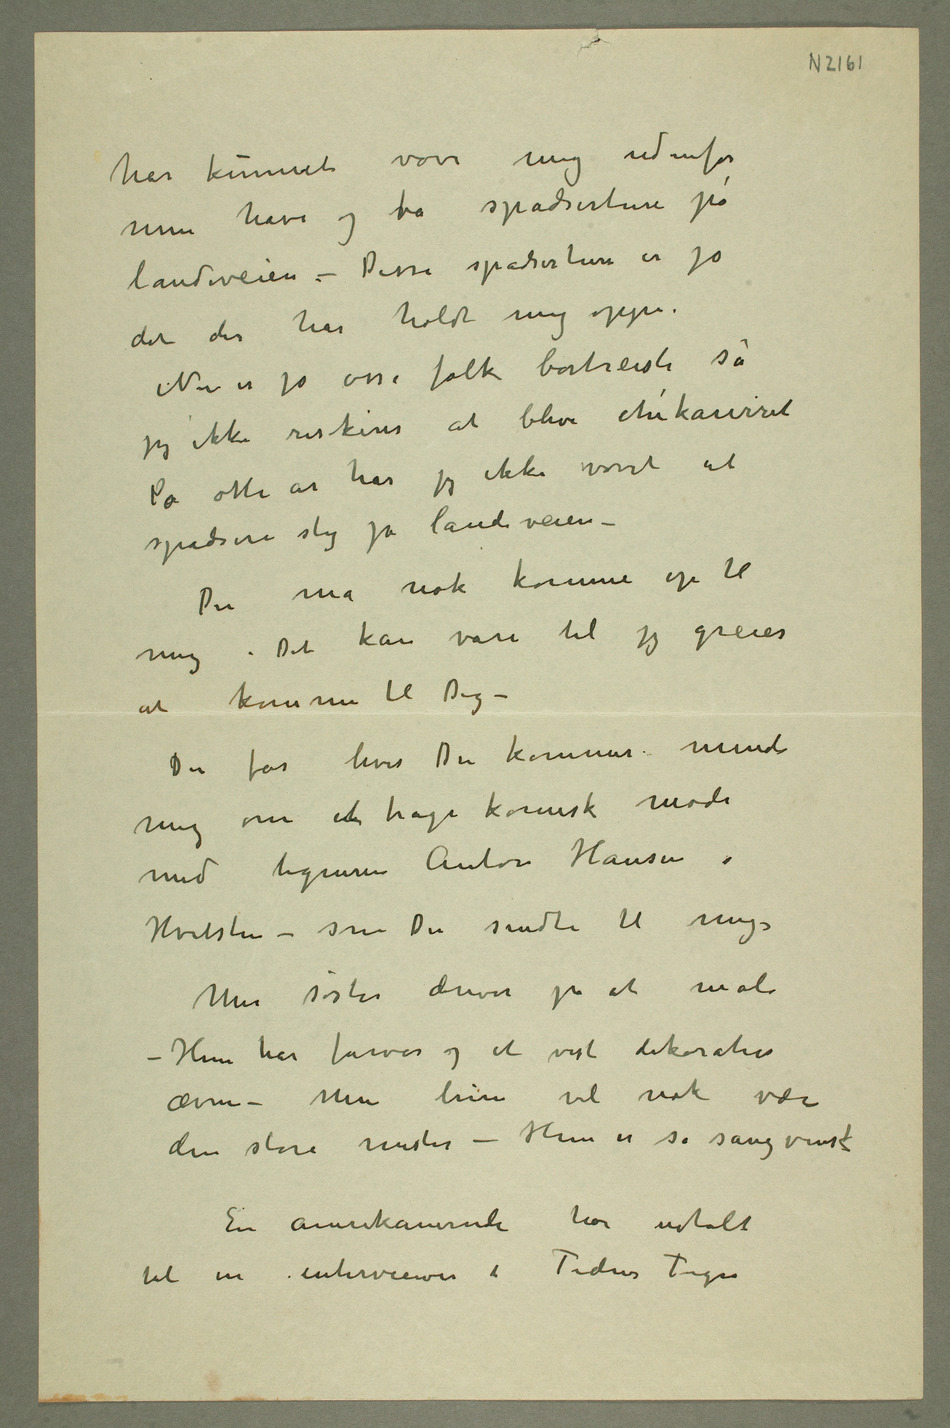 N 2161
har kunnet vove mig udenfor
min have og ta spadserture på
landeveien – Disse spadserture er jo
det der har holdt mig oppe.
Nu er jo osse folk bortreiste så
jeg ikke riskerer at blive chikaneret
På otte år har jeg ikke vovet at
spadsere slig på landeveien –
Du må nok komme op til
mig . Det kan være til jeg greier
at komme til Dig –
Du får hvis Du kommer minde
mig om et tragi komisk møde
med tegneren Anton Hansen i
Hvitsten – som Du sendte til mig
Min søster driver på at male
– Hun har farver og et vist dekorativt
ævne – Men hun vil nok være
den store mester – Hun er så sangvinsk
En amerikanerinde har udtalt
til en interviewer i Tidens Tegn